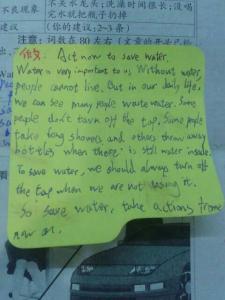 不良现象 不关水龙头;洗澡时间很长;没喝
完水就把瓶子扔掉
建议 (你的建议:2~3条)
注意: 词数在80左右
Act now to save water.
Water is very important to us. Without water,
people cannot live. But in our daily life,
we can see many people waste water. Some
people don't turn off the tap. Some people
take long showers and others throw away
bottles when there is still water inside.
To save water, we should always turn off
the tap when we are not using it.
So save water, take actions from
now on.